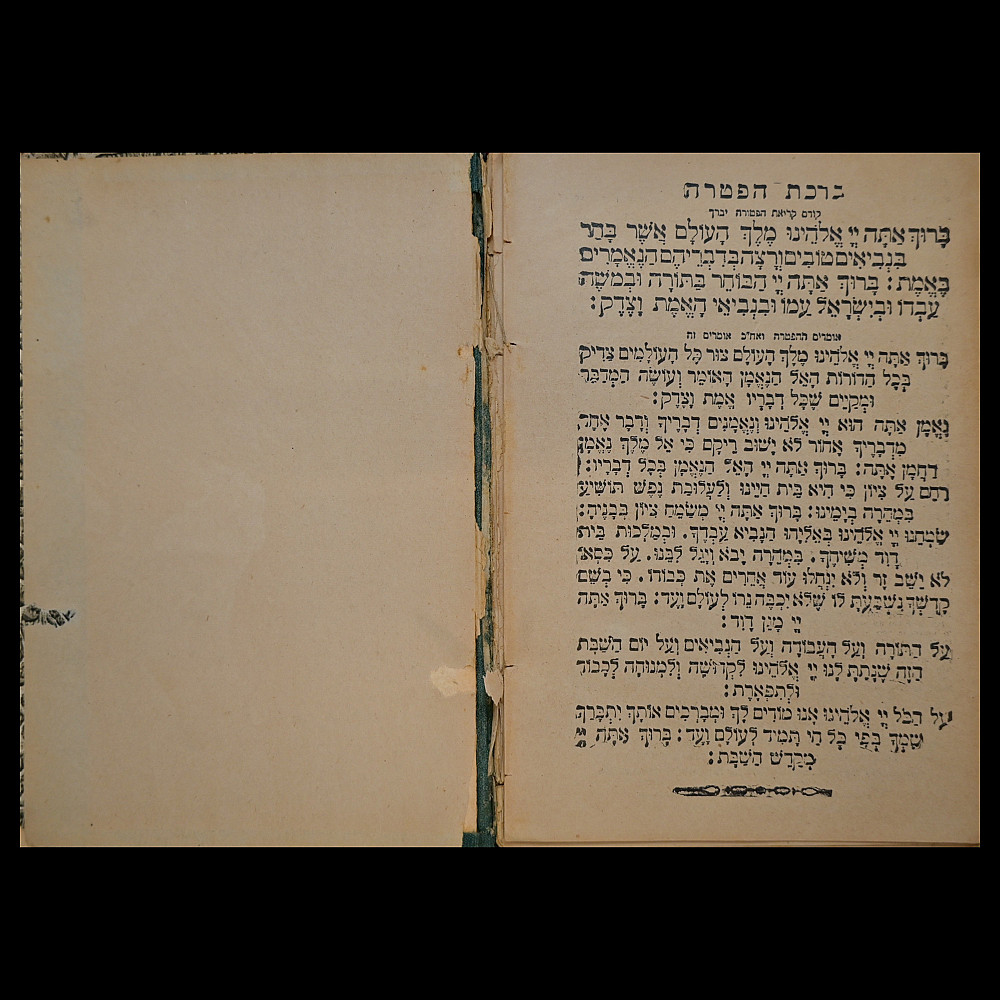 ברכת הפטרה
קודם קריאת הפטורה יברך
בָּרוּךְ אַתָּה יְיָ אֱלֹהֵינוּ מֶלֶךְ הָעוֹלָם אֲשֶׁר בָּחַר
בִּנְבִיאִים טוֹבִים וְרָצָה בְדִבְרֵיהֶם הַנֶּאֱמָרִים
בֶּאֱמֶת: בָּרוּךְ אַתָּה יְיָ הַבּוֹחֵר בַּתּוֹרָה וּבְמֹשֶׁה
עַבְדּוֹ וּבְיִשְׂרָאֵל עַמּוֹ וּבִנְבִיאֵי הָאֱמֶת וָצֶדֶק:
אומרים ההפטרה ואח"כ אומרים זה
בָּרוּךְ אַתָּה יְיָ אֱלֹהֵינוּ מֶלֶךְ הָעוֹלָם צוּר כָּל הָעוֹלָמִים צַדִּיק
בְּכָל הַדּוֹרוֹת הָאֵל הַנֶּאֱמָן הָאוֹמֵר וְעוֹשֶׂה הַמְדַבֵּר
וּמְקַיֵּים שֶׁכָּל דְּבָרָיו אֱמֶת וָצֶדֶק:
נֶאֱמָן אַתָּה הוּא יְיָ אֱלֹהֵינוּ וְנֶאֱמָנִים דְּבָרֶיךָ וְדָבָר אֶחָד
מִדְּבָרֶיךָ אָחוֹר לֹא יָשׁוּב רֵיקָם כִּי אֵל מֶלֶךְ נֶאֱמָן
רַחֲמָן אָתָּה: בָּרוּךְ אַתָּה יְיָ הָאֵל הַנֶּאֱמָן בְּכָל דְּבָרָיו:
רַחֵם עַל צִיּוֹן כִּי הִיא בֵּית חַיֵּינוּ וְלַעֲלוּבַת נֶפֶשׁ תּוֹשִׁיעַ
בִּמְהֵרָה בְיָמֵינוּ: בָּרוּךְ אַתָּה יְיָ מְשַׂמֵּחַ צִיּוֹן בְּבָנֶיהָ:
שַׂמְּחֵנוּ יְיָ אֱלֹהֵינוּ בְּאֵלִיָּהוּ הַנָּבִיא עַבְדֶּךָ. וּבְמַלְכוּת בֵּית
דָּוִד מְשִׁיחֶךָ. בִּמְהֵרָה יָבֹא וְיָגֵל לִבֵּנוּ. עַל כִּסְאוֹ
לֹא יֵשֵׁב זָר וְלֹא יִנְחֲלוּ עוֹד אֲחֵרִים אֶת כְּבוֹדוֹ. כִּי בְשֵׁם
קָדְשְׁךָ נִשְׁבַּעְתָּ לּוֹ שֶׁלֹּא יִכְבֶּה נֵרוֹ לְעוֹלָם וָעֶד: בָּרוּךְ אַתָּה
יְיָ מָגֵן דָּוִד:
עַל הַתּוֹרָה וְעַל הָעֲבוֹדָה וְעַל הַנְּבִיאִים וְעַל יוֹם הַשַּׁבָּת
הַזֶּה שֶׁנָּתַתָּ לָּנוּ יְיָ אֱלֹהֵינוּ לִקְדוּשָׁה וְלִמְנוּחָה לְכָבוֹד
וּלְתִפְאָרֶת:
עַל הַכֹּל יְיָ אֱלֹהֵינוּ אָנוּ מוֹדִים לָךְ וּמְבָרְכִים אוֹתָךְ יִתְבָּרַךְ
שִׁמְךָ בְּפִי כָּל חַי תָּמִיד לְעוֹלָם וָעֶד: בָּרוּךְ אַתָּה יְיָ
מְקַדֵּשׁ הַשַּׁבָּת: